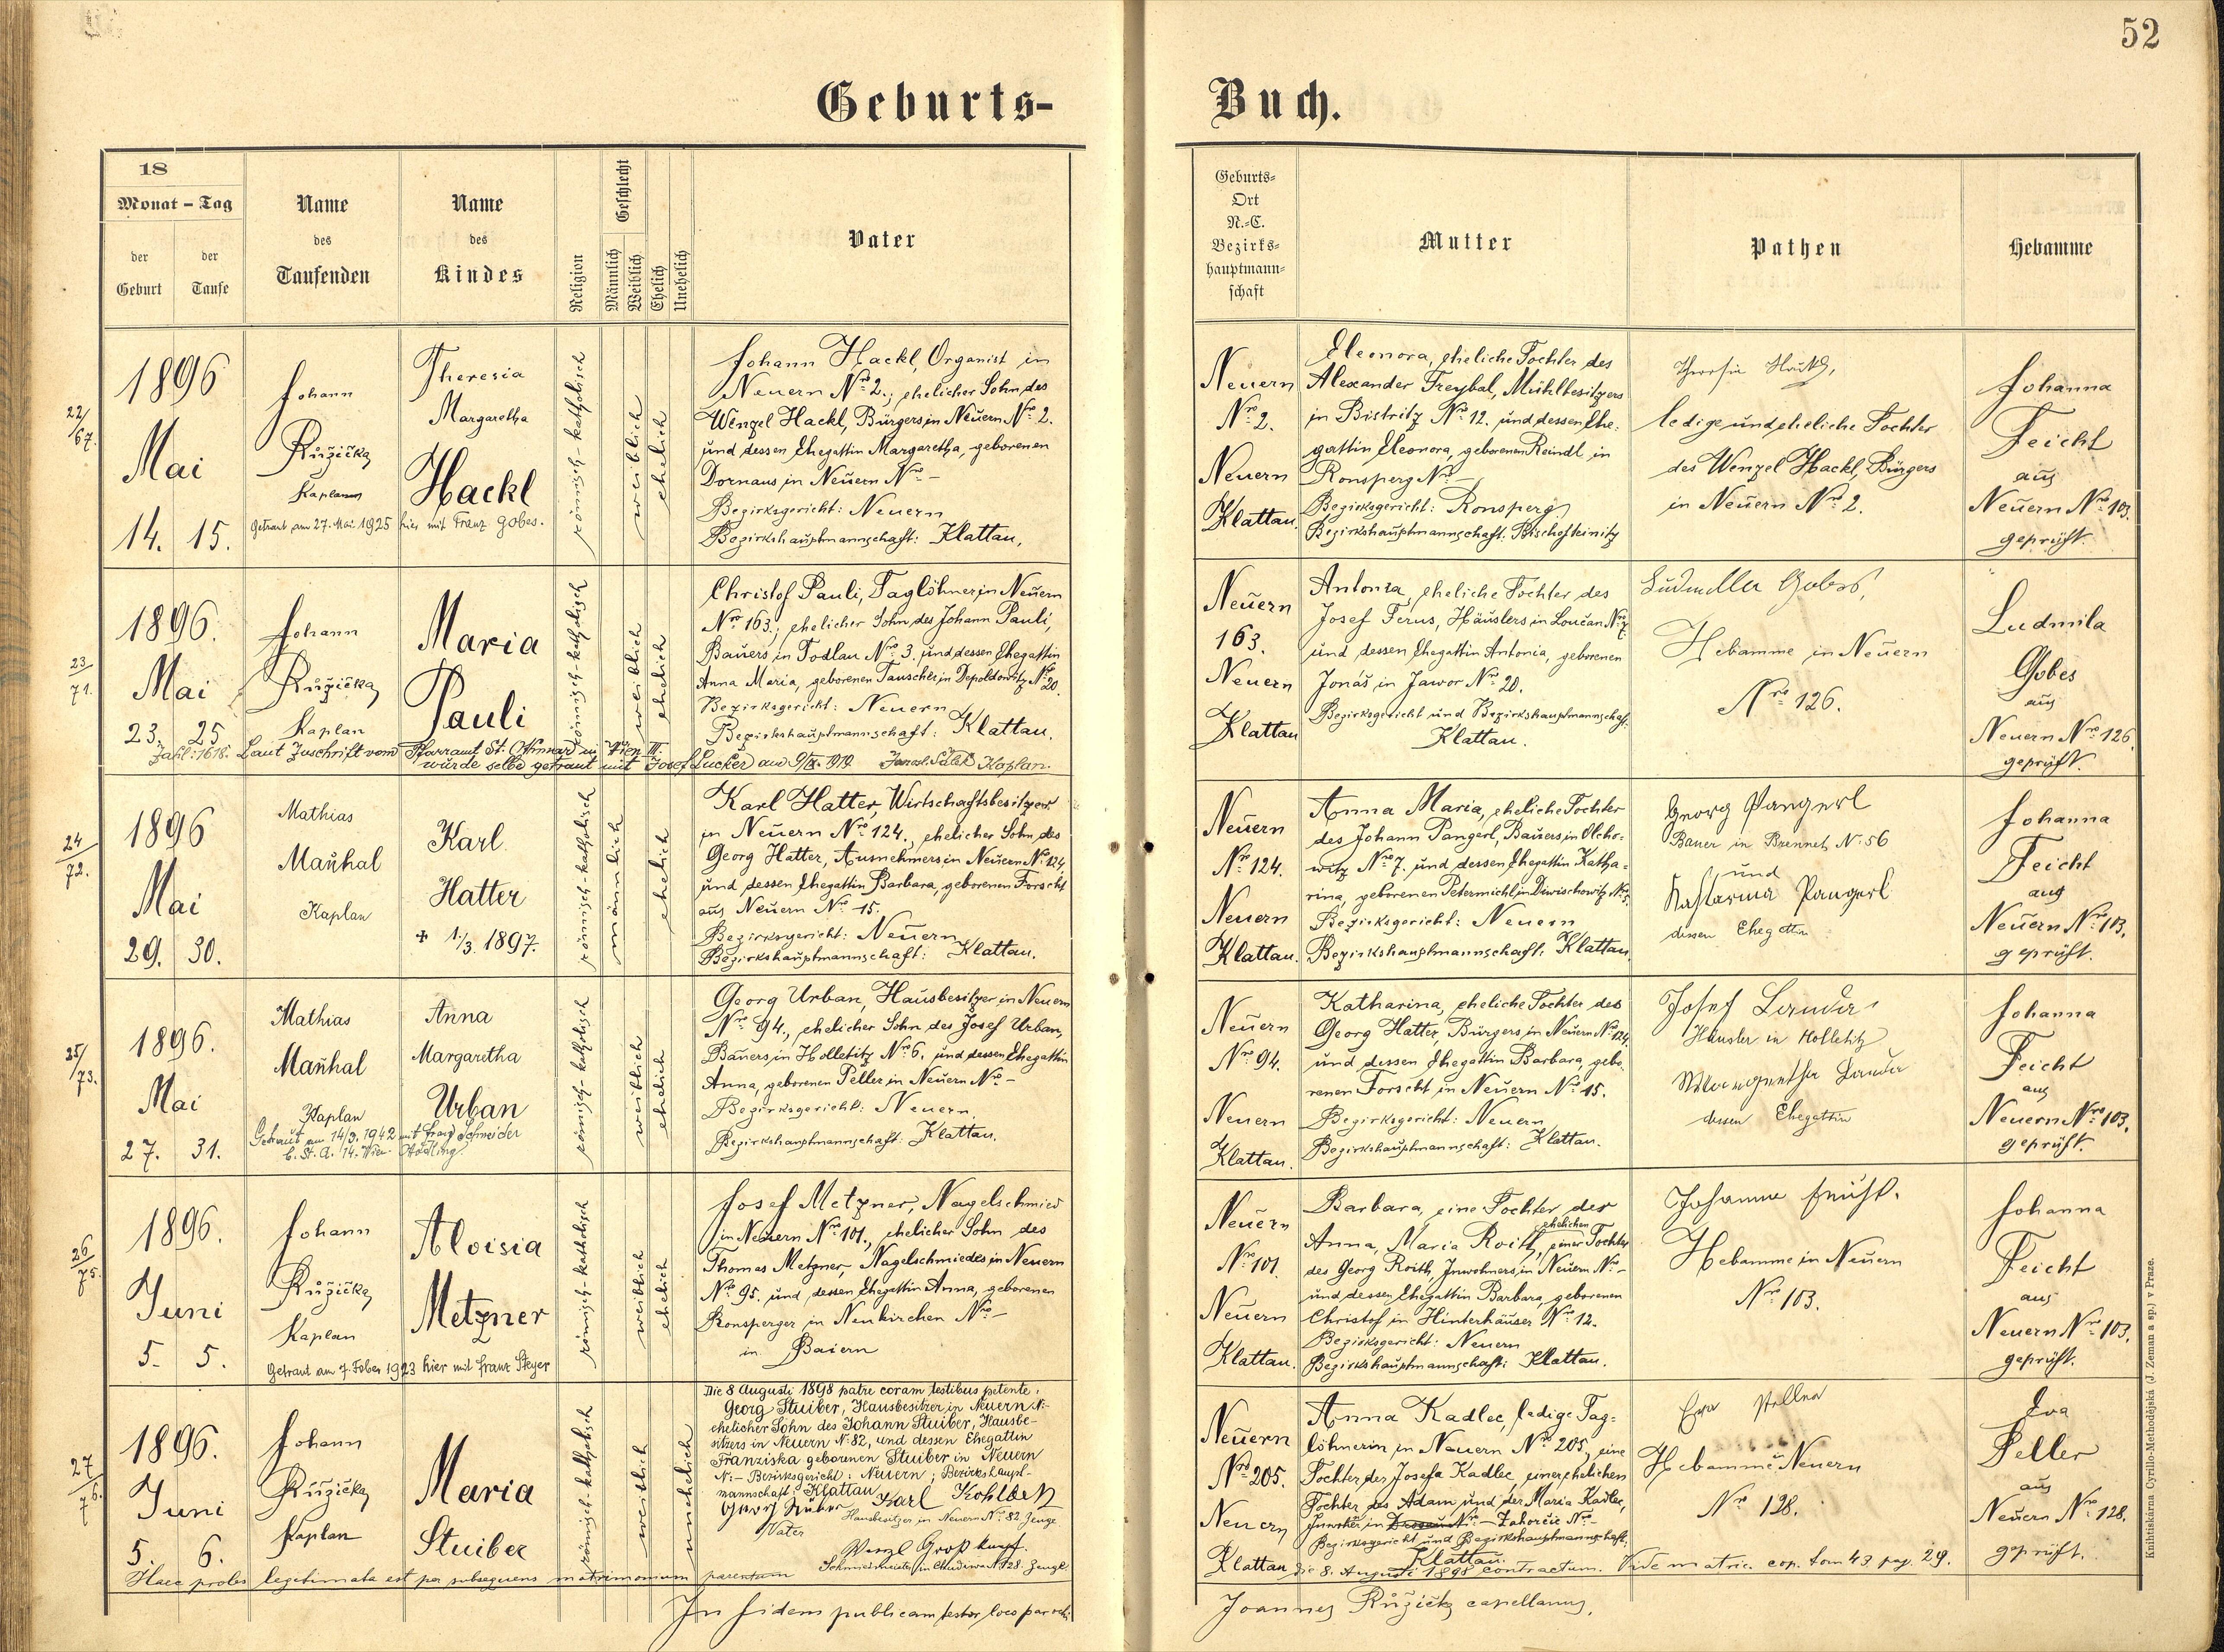 52
Geburts-
Buch.
18
Monat - Tag
der
Geburt
der
Taufe
Name
des
Taufenden
Name
des
Kindes
Religion
Geschlecht
Männlich
Weiblich
Ehelich
Unehelich
Vater
Geburts-
Ort
N.-C.
Bezirks-
hauptmann-
schaft
Mutter
Pathen
Hebamme
22/67.
1896
Mai
14. 15.
Johann
Růžička
Kaplan
Theresia
Margaretha
Hackl
Getraut am 27. Mai 1925 hier mit Franz Gobes.
römisch-katholisch
weiblich
ehelich
Johann Hackl, Organist in
Neuern Nro 2., ehelicher Sohn des
Wenzel Hackl, Bürgers in Neuern Nro 2.
und dessen Ehegattin Margaretha, geborenen
Dornaus in Neuern Nro -
Bezirksgericht: Neuern
Bezirkshauptmannschaft: Klattau.
Neuern
Nro 2.
Neuern
Klattau.
Eleonora, eheliche Tochter des
Alexander Freybal, Mühlbesitzers
in Bistritz Nro 12. und dessen Ehe-
gattin Eleonora, geborenen Reindl in
Ronsperg Nro -
Bezirksgericht: Ronsperg
Bezirkshauptmannschaft: Bischofteinitz
Theresia Hackl,
ledige und eheliche Tochter
des Wenzel Hackl, Bürgers
in Neuern Nro 2.
Johanna
Feicht
aus
Neuern Nro 103.
geprüft.
23/71.
1896.
Mai
23. 25
Johann
Růžička
Kaplan
Maria
Pauli
römisch-katholisch
weiblich
ehelich
Christof Pauli, Taglöhner in Neuern
Nro 163., ehelicher Sohn des Johann Pauli,
Bauers in Todlau Nro 3. und dessen Ehegattin
Anna Maria, geborenen Tauscher in Depoldowitz Nro 20.
Bezirksgericht: Neuern
Bezirkshauptmannschaft: Klattau.
Zahl: 1618. Laut Zuschrift vom Pfarramt St. Othmar in Wien III.
wurde selbe getraut mit Josef Lucker am 9/IX. 1919. Kaplan.
Neuern
163.
Neuern
Klattau
Antonia, eheliche Tochter des
Josef Ferus, Häuslers in Loučan Nro 7.
und dessen Ehegattin Antonia, geborenen
Jonáš in Jawor Nro 20.
Bezirksgericht und Bezirkshauptmannschaft:
Klattau.
Ludmilla Gobes,
Hebamme in Neuern
Nro 126.
Ludmila
Gobes
aus
Neuern Nro 126.
geprüft.
24/72.
1896
Mai
29. 30.
Mathias
Maňhal
Kaplan
Karl
Hatter
+ 1/3. 1897.
römisch-katholisch
männlich
ehelich
Karl Hatter, Wirtschaftsbesitzer
in Neuern Nro 124., ehelicher Sohn des
Georg Hatter, Ausnehmers in Neuern Nro 124,
und dessen Ehegattin Barbara, geborenen Forscht
aus Neuern Nro 15.
Bezirksgericht: Neuern
Bezirkshauptmannschaft: Klattau.
Neuern
Nro 124.
Neuern
Klattau.
Anna Maria, eheliche Tochter
des Johann Pangerl, Bauers in Olcho-
witz Nro 7. und dessen Ehegattin Katha-
rina, geborenen Petermichl in Diwischowitz Nro 5.
Bezirksgericht: Neuern
Bezirkshauptmannschaft: Klattau.
Georg Pangerl
Bauer in Brennet N: 56
und
Katharina Pangerl
dessen Ehegattin
Johanna
Feicht
aus
Neuern Nro 103.
geprüft.
25/73.
1896.
Mai
27. 31.
Mathias
Maňhal
Kaplan
Anna
Margaretha
Urban
Getraut am 14/3. 1942 mit Franz Schneider
b. St. A. 14. Wien
römisch-katholisch
weiblich
ehelich
Georg Urban, Hausbesitzer in Neuern
Nro 94., ehelicher Sohn des Josef Urban,
Bauers in Holletitz Nro 6. und dessen Ehegattin
Anna, geborenen Peller in Neuern Nro -
Bezirksgericht: Neuern.
Bezirkshauptmannschaft: Klattau.
Neuern
Nro 94.
Neuern
Klattau.
Katharina, eheliche Tochter des
Georg Hatter, Bürgers in Neuern Nro 124.
und dessen Ehegattin Barbara, gebo-
renen Forscht in Neuern Nro 15.
Bezirksgericht: Neuern
Bezirkshauptmannschaft: Klattau.
Josef Lauda
Häusler in Holletitz
Margaretha Lauda
dessen Ehegattin
Johanna
Feicht
aus
Neuern Nro 103.
geprüft.
26/75.
1896.
Juni
5. 5.
Johann
Růžička
Kaplan
Aloisia
Metzner
Getraut am 7. Feber 1923 hier mit Franz Steyer
römisch-katholisch
weiblich
ehelich
Josef Metzner, Nagelschmied
in Neuern Nro 101., ehelicher Sohn des
Thomas Metzner, Nagelschmiedes in Neuern
Nro 95. und dessen Ehegattin Anna, geborenen
Ronsperger in Neukirchen Nro -
in Baiern
Neuern
Nro 101.
Neuern
Klattau.
Barbara, eine Tochter der
Anna, Maria Roith, einer ehelichen Tochter
des Georg Roith, Inwohners in Neuern Nro -
und dessen Ehegattin Barbara, geborenen
Christof in Hinterhäuser Nro 12.
Bezirksgericht: Neuern
Bezirkshauptmannschaft: Klattau.
Johanna Feicht.
Hebamme in Neuern
Nro 103.
Johanna
Feicht
aus
Neuern Nro 103.
geprüft.
27/76.
1896.
Juni
5. 6.
Johann
Růžička
Kaplan
Maria
Stuiber
römisch-katholisch
weiblich
unehelich
Die 8 Augusti 1898 patre coram testibus petente.
Georg Stuiber, Hausbesitzer in Neuern N:-
ehelicher Sohn des Johann Stuiber, Hausbe-
sitzers in Neuern N: 82, und dessen Ehegattin
Franziska geborenen Stuiber in Neuern
N: - Bezirksgericht: Neuern; Bezirkshaupt-
mannschaft: Klattau
Georg Stuiber Karl Kohlbeck
Vater Hausbesitzer in Neuern Nro 82 Zeuge
Wenzl Großkopf.
Schmiedmeister in Chudiwa N 28 Zeuge
Neuern
Nro 205.
Neuern
Klattau
Anna Kadlec, ledige Tag-
löhnerin in Neuern Nro 205., eine
Tochter der Josefa Kadlec, einer ehelichen
Tochter des Adam und der Maria Kadlec,
Inwohner in Nro - Zahorčic Nro -
Bezirksgericht und Bezirkshauptmannschaft:
Klattau.
Eva Pellner
Hebamme Neuern
Nro 128.
Eva
Peller
aus
Neuern Nro 128.
geprüft.
Haec proles legitimata est per subsequens matrimonium parentum die 8. Augusti 1898 contractum. Vide matric. cop. tom 43 pag. 29.
In fidem publicam testor loco parochi
Joannes Růžička capellanus.
Knihtiskárna Cyrillo-Methodějská (J. Zeman a sp.) v Praze.